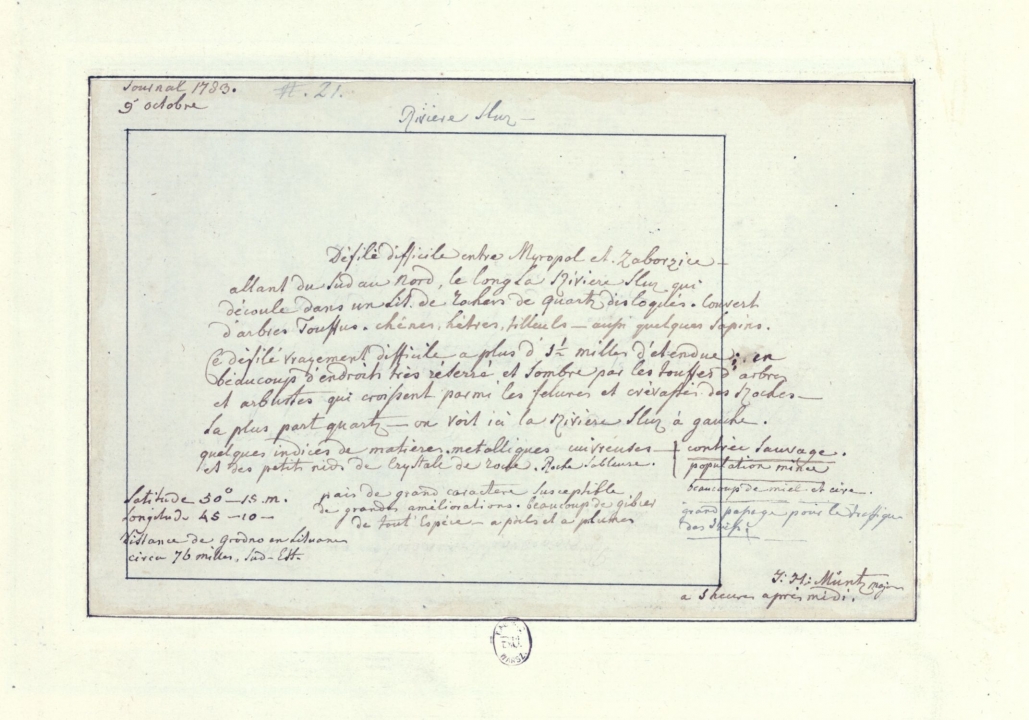 Journal 1783. N. 21.
9 octobre
Riviere Sluz —
Défilé difficile entre Myropol et Zaborzice —
allant du Sud au Nord, le long La Riviere Sluz qui
découle dans un Lit de Rochers de quartz disloqués. Couvert
d'arbres Touffus. chênes, hêtres, tilleuls — aussi quelques Sapins.
Ce défilé vrayement difficile a plus d' 1½ milles d'etendue; en
beaucoup d'endroits très réserré et Sombre par les touffes d'arbres
et arbustes qui croissent parmi les felures et crévasses des Roches —
La plus part quartz — on voit ici la Riviere Sluz à gauche.
quelques indices de matieres metalliques cuivreuses —
et des petits nids de Crystals de roche. Roche Sableuse.
contrée Sauvage.
population mince
beaucoup de miel et cire.
grand passage pour le traffique
des
païs de grand caractere Susceptible
de grandes améliorations. beaucoup de gibier
de tout Espèce — a poils et a plumes
Latitude 50° — 15. m.
Longitude 45 — 10 —
Distance de Grodno en Lituanie
circa 76 milles, Sud-Est.
J: H: Müntz major
a 5 heures après midi.